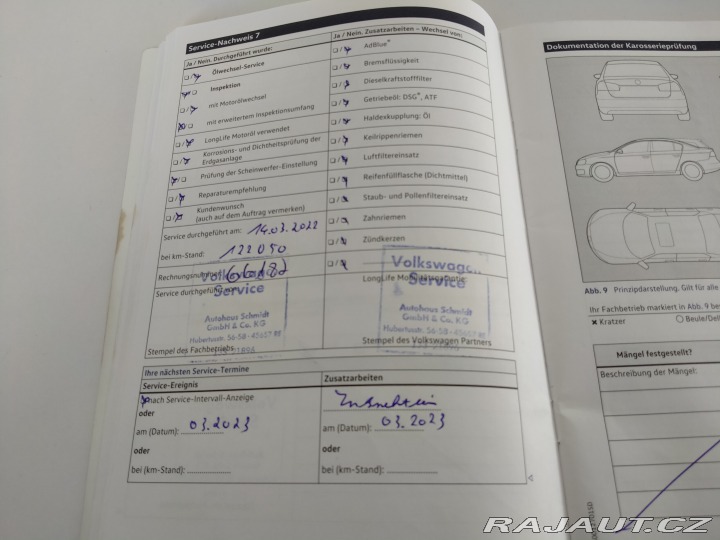 Service-Nachweis 7
Ja / Nein. Durchgeführt wurde:
Ölwechsel-Service
Inspektion
mit Motorölwechsel
mit erweitertem Inspektionsumfang
LongLife Motoröl verwendet
Korrosions- und Dichtheitsprüfung der
Erdgasanlage
Prüfung der Scheinwerfer-Einstellung
Reparaturempfehlung
Kundenwunsch
(auch auf dem Auftrag vermerken)
Service durchgeführt am: 14.03.2022
bei km-Stand: 122050
Rechnungsnummer:
Service durchgeführt von:
Volkswagen
Service
Autohaus Schmidt
GmbH & Co. KG
Hubertusstr. 56-58 - 45657 RE
Stempel des Fachbetriebs
Ja / Nein. Zusatzarbeiten – Wechsel von:
AdBlue®
Bremsflüssigkeit
Dieselkraftstofffilter
Getriebeöl: DSG®, ATF
Haldexkupplung: Öl
Keilrippenriemen
Luftfiltereinsatz
Reifenfüllflasche (Dichtmittel)
Staub- und Pollenfiltereinsatz
Zahnriemen
Zündkerzen
LongLife Mobilitätsgarantie
Volkswagen
Service
Autohaus Schmidt
GmbH & Co. KG
Hubertusstr. 56-58 - 45657 RE
Stempel des Volkswagen Partners
Ihre nächsten Service-Termine
Service-Ereignis
nach Service-Intervall-Anzeige
oder
am (Datum): 03.2023
oder
bei (km-Stand):
Zusatzarbeiten
am (Datum): 03.2023
oder
bei (km-Stand):
Dokumentation der Karosserieprüfung
Abb. 9 Prinzipdarstellung. Gilt für alle
Ihr Fachbetrieb markiert in Abb. 9
× Kratzer
Mängel festgestellt?
Beschreibung der Mängel:
RAJAUT.CZ